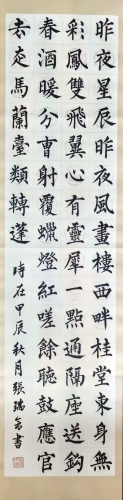 昨夜星辰昨夜風畫樓西畔桂堂東身無
彩鳳雙飛翼心有靈犀一點通隔座送鈎
春酒暖分曹射覆蠟燈紅嗟餘聽鼓應官
去走馬蘭臺類轉蓬
時在甲辰秋月張瑞書